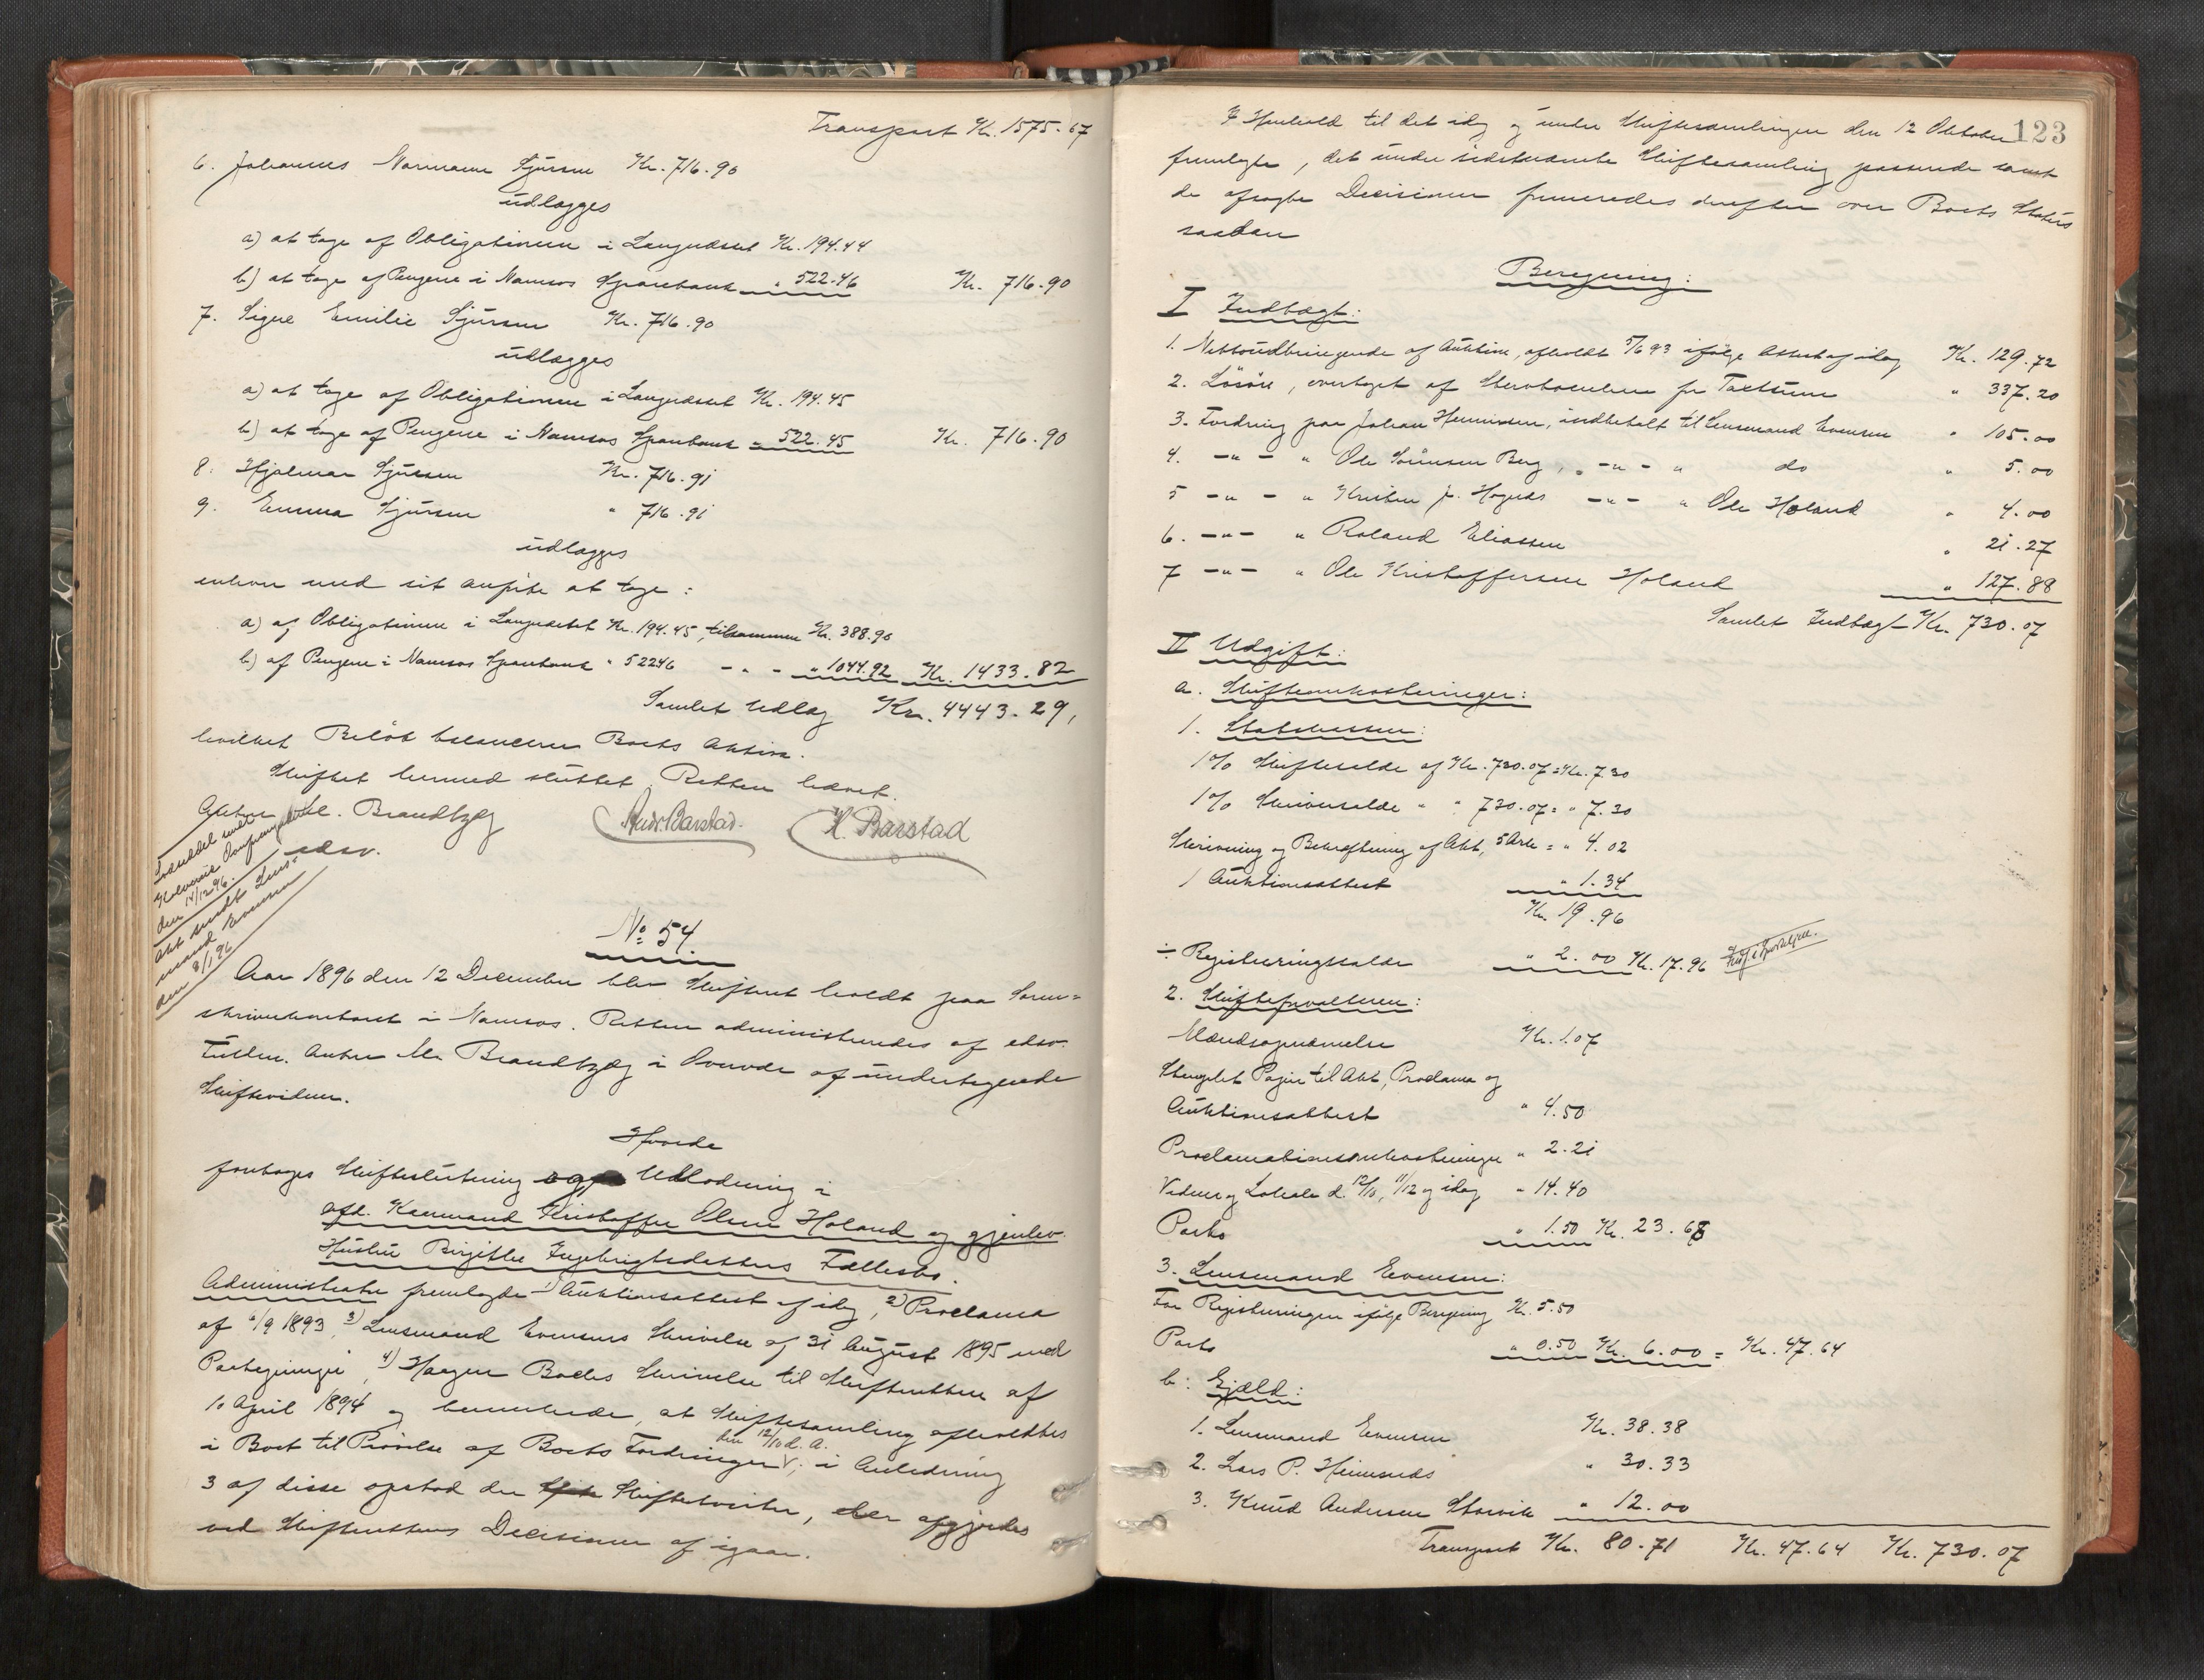 Transport Kr. 1575.67
6. Johannes Normann Sjursen Kr. 716.90
udlægges
a) at tage af Obligationen i Langnæsset Kr. 194.44
b) at tage af Pengene i Namsos Sparebank " 522.46 Kr. 716.90
7. Signe Emilie Sjursen Kr. 716.90
udlægges
a) at tage af Obligationen i Langnæsset Kr. 194.45
b) at tage af Pengene i Namsos Sparebank " 522.45 Kr. 716.90
8. Hjalmar Sjursen Kr. 716.91
9. Emma Sjursen " 716.91
udlægges
enhver med sit anførte at tage:
a) af Obligationen i Langnæsset Kr. 194.45, tilsammen Kr. 388.90
b) af Pengene i Namsos Sparebank " 522.46 - " - " 1044.92 Kr. 1433.82
Samlet Udlæg Kr. 4443.29,
hvilket Beløb balancerer Boets Aktiva.
Skiftet hermed sluttet. Retten hævet.
Anton Chr. Brandtzæg
edsv.
Andr. Barstad. K. Barstad
den 14/12 96.
Akt sendt Lens-
mand Evensen
den 8/1 96
No 54.
Aar 1896 den 12 December blev Skifteret holdt paa Soren-
skriverkontoret i Namsos. Retten administreredes af edsv.
Fuldm. Anton Chr. Brandtzæg i Overvær af undertegnede
Skiftevidner.
Hvorda
foretoges Skifteslutning og Udlodning i
afd. Kaarmand Kristoffer Olsen Høland og gjenlev.
Hustru Birgitte Ingebrigtsdatters Fællesbo.
Administrator fremlagde 1) Auktionsattest af idag, 2) Proclama
af 6/9 1893, 3) Lensmand Evensens Skrivelse af 31 August 1895 med
Paategninger, 4) Haagen Boels Skrivelse til Skifteretten af
10 April 1894 og bemærkede, at Skiftesamling afholdtes
den 12/10 d. A.
i Boet til Prøvelse af Boets Fordringer V; i Anledning
3 af disse opstod der Skiftetvister, der afgjordes
ved Skifterettens Decisioner af igaar.
123
I Henhold til det idag og under Skiftesamlingen den 12 Oktober
fremlagte, det under sidstnævnte Skiftesamling passerede samt
de afsagte Decisioner formeredes derefter over Boets Status
saadan
Beregning:
I Indtægt:
1. Nettoudbringende af Auktion, afholdt 5/6 93 ifølge Attest af idag Kr. 129.72
2. Løsøre, overtaget af Stervboenken for Taxtsum " 337.20
3. Fordring paa Johan Henriksen, indbetalt til Lensmand Evensen " 105.00
4. -"- " Ole Sørensen Berg, " -"- " do " 5.00
5 -"- " Kristen J. Høgnes -"- " Ole Høland " 4.00
6. -"- " Roland Eliassen " 21.27
7 -"- " Ole Kristoffersen Høland " 127.88
Samlet Indtægt Kr. 730.07
II Udgift:
a. Skifteomkostninger:
1. Statskassen:
1 % Skifteafgift af Kr. 730.07 = Kr. 7.30
1 % Skriversalær " " 730.07 = " 7.30
Skrivning og Bekræftning af Akt, 5 Ark = " 4.02
1 Auktionsattest " 1.34
Kr. 19.96
÷ Registreringssalær " 2.00 Kr. 17.96
2. Skifteforvalteren:
Mændsopnævnelse Kr. 1.07
Stemplet Papir til Akt, Proclama og
Auktionsattest " 4.50
Proclamationsomkostninger " 2.21
Vidner og Lokale d. 12/10, 11/12 og idag " 14.40
Porto " 1.50 Kr. 23.68
3. Lensmand Evensen:
For Registreringen ifølge Beregning Kr. 5.50
Porto " 0.50 Kr. 6.00 = Kr. 47.64
b. Gjæld:
1. Lensmand Evensen Kr. 38.38
2. Lars P. Heimsnes " 30.33
3. Knud Andersen Storvik " 12.00
Transport Kr. 80.71 Kr. 47.64 Kr. 730.07